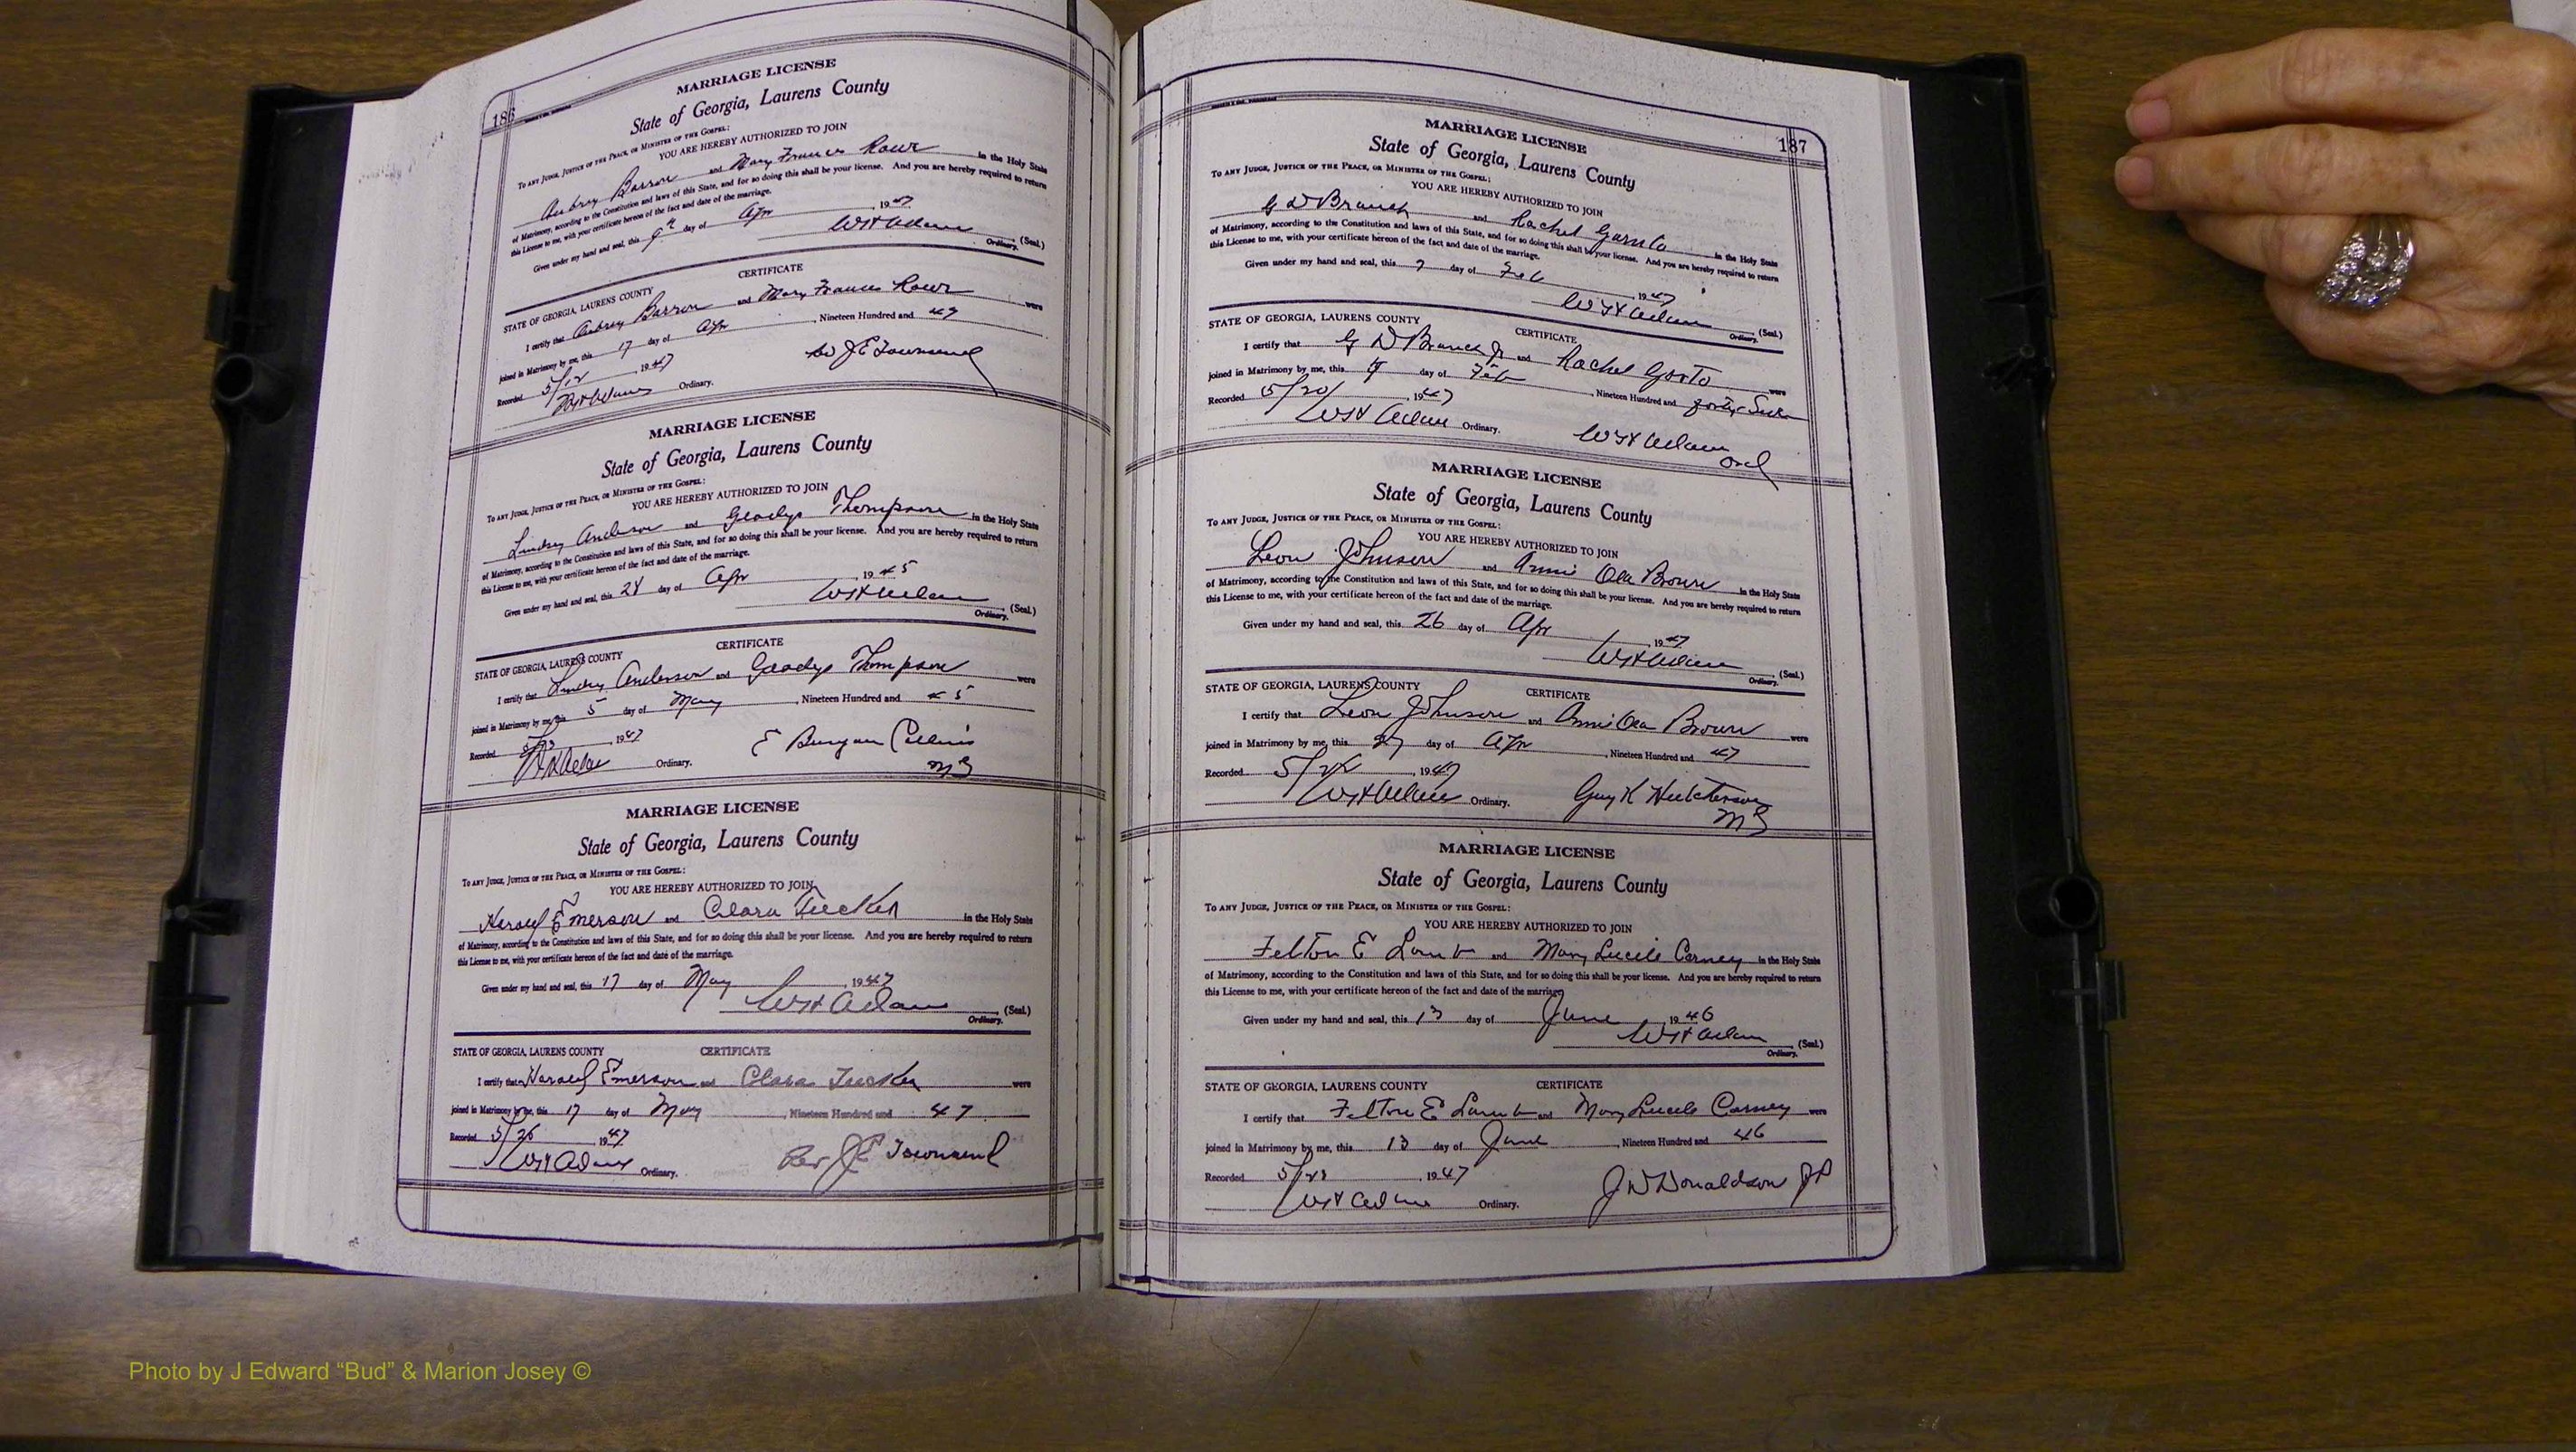 186
MARRIAGE LICENSE
State of Georgia, Laurens County
TO ANY JUDGE, JUSTICE OF THE PEACE, OR MINISTER OF THE GOSPEL:
YOU ARE HEREBY AUTHORIZED TO JOIN
Aubrey Barron and Mary Frances in the Holy State
of Matrimony, according to the Constitution and laws of this State, and for so doing this shall be your license. And you are hereby required to return
this License to me, with your certificate hereon of the fact and date of the marriage.
Given under my hand and seal, this 9th day of Apr, 1947
WH Adams (Seal.)
Ordinary.
CERTIFICATE
STATE OF GEORGIA, LAURENS COUNTY
I certify that Aubrey Barron and Mary Frances were
joined in Matrimony by me, this 17 day of Apr, Nineteen Hundred and 47
Recorded 5/12, 1947
WH Adams Ordinary.
Rev JE Townsend
MARRIAGE LICENSE
State of Georgia, Laurens County
TO ANY JUDGE, JUSTICE OF THE PEACE, OR MINISTER OF THE GOSPEL:
YOU ARE HEREBY AUTHORIZED TO JOIN
Lindsey Anderson and Gladys Thompson in the Holy State
of Matrimony, according to the Constitution and laws of this State, and for so doing this shall be your license. And you are hereby required to return
this License to me, with your certificate hereon of the fact and date of the marriage.
Given under my hand and seal, this 28 day of Apr, 1945
WH Adams (Seal.)
Ordinary.
CERTIFICATE
STATE OF GEORGIA, LAURENS COUNTY
I certify that Lindsey Anderson and Gladys Thompson were
joined in Matrimony by me, this 5 day of May, Nineteen Hundred and 45
Recorded, 1947
WH Adams Ordinary.
E Bunyan Collins
MG
MARRIAGE LICENSE
State of Georgia, Laurens County
TO ANY JUDGE, JUSTICE OF THE PEACE, OR MINISTER OF THE GOSPEL:
YOU ARE HEREBY AUTHORIZED TO JOIN
Harold Emerson and Clara Tucker in the Holy State
of Matrimony, according to the Constitution and laws of this State, and for so doing this shall be your license. And you are hereby required to return
this License to me, with your certificate hereon of the fact and date of the marriage.
Given under my hand and seal, this 17 day of May, 1947
WH Adams (Seal.)
Ordinary.
STATE OF GEORGIA, LAURENS COUNTY CERTIFICATE
I certify that Harold Emerson and Clara Tucker were
joined in Matrimony by me, this 17 day of May, Nineteen Hundred and 47
Recorded 5/26 1947
WH Adams Ordinary.
Rev JE Townsend
187
MARRIAGE LICENSE
State of Georgia, Laurens County
TO ANY JUDGE, JUSTICE OF THE PEACE, OR MINISTER OF THE GOSPEL:
YOU ARE HEREBY AUTHORIZED TO JOIN
G D Branch and Rachel in the Holy State
of Matrimony, according to the Constitution and laws of this State, and for so doing this shall be your license. And you are hereby required to return
this License to me, with your certificate hereon of the fact and date of the marriage.
Given under my hand and seal, this 7 day of Feb, 1947
WH Adams (Seal.)
Ordinary.
STATE OF GEORGIA, LAURENS COUNTY CERTIFICATE
I certify that G D Branch Jr and Rachel were
joined in Matrimony by me, this day of Feb, Nineteen Hundred and
Recorded 5/20, 1947
WH Adams Ordinary.
WH Adams
Ord
MARRIAGE LICENSE
State of Georgia, Laurens County
TO ANY JUDGE, JUSTICE OF THE PEACE, OR MINISTER OF THE GOSPEL:
YOU ARE HEREBY AUTHORIZED TO JOIN
Leon Johnson and Annie Ola Brown in the Holy State
of Matrimony, according to the Constitution and laws of this State, and for so doing this shall be your license. And you are hereby required to return
this License to me, with your certificate hereon of the fact and date of the marriage.
Given under my hand and seal, this 26 day of Apr, 1947
WH Adams (Seal.)
Ordinary.
STATE OF GEORGIA, LAURENS COUNTY CERTIFICATE
I certify that Leon Johnson and Annie Ola Brown were
joined in Matrimony by me, this 27 day of Apr, Nineteen Hundred and 47
Recorded, 1947
WH Adams Ordinary.
Guy K Hutcherson
MG
MARRIAGE LICENSE
State of Georgia, Laurens County
TO ANY JUDGE, JUSTICE OF THE PEACE, OR MINISTER OF THE GOSPEL:
YOU ARE HEREBY AUTHORIZED TO JOIN
Felton E Lamb and Mary Lucile Carney in the Holy State
of Matrimony, according to the Constitution and laws of this State, and for so doing this shall be your license. And you are hereby required to return
this License to me, with your certificate hereon of the fact and date of the marriage.
Given under my hand and seal, this 13 day of June, 1946
WH Adams (Seal.)
Ordinary.
STATE OF GEORGIA, LAURENS COUNTY CERTIFICATE
I certify that Felton E Lamb and Mary Lucile Carney were
joined in Matrimony by me, this 13 day of June, Nineteen Hundred and 46
Recorded, 1947
WH Adams Ordinary.
J W Donaldson JP
Photo by J Edward “Bud” & Marion Josey ©